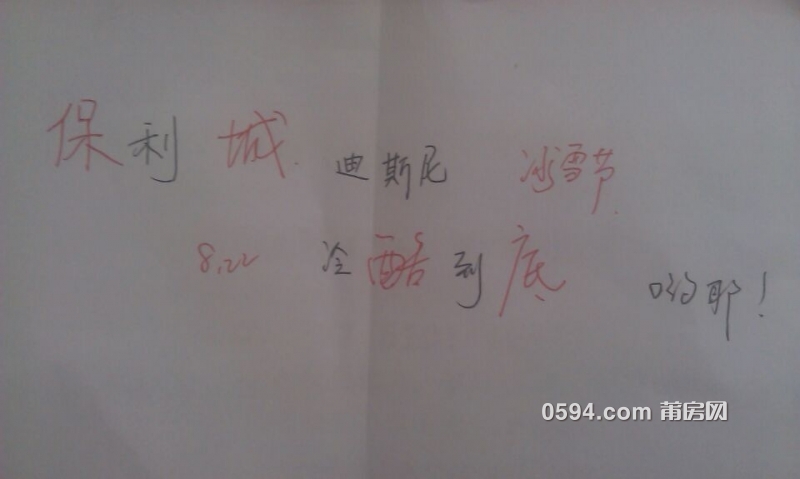 保利城 迪斯尼 冰雪节
8.22 冷酷到底 哟耶!
0594.com 莆房网